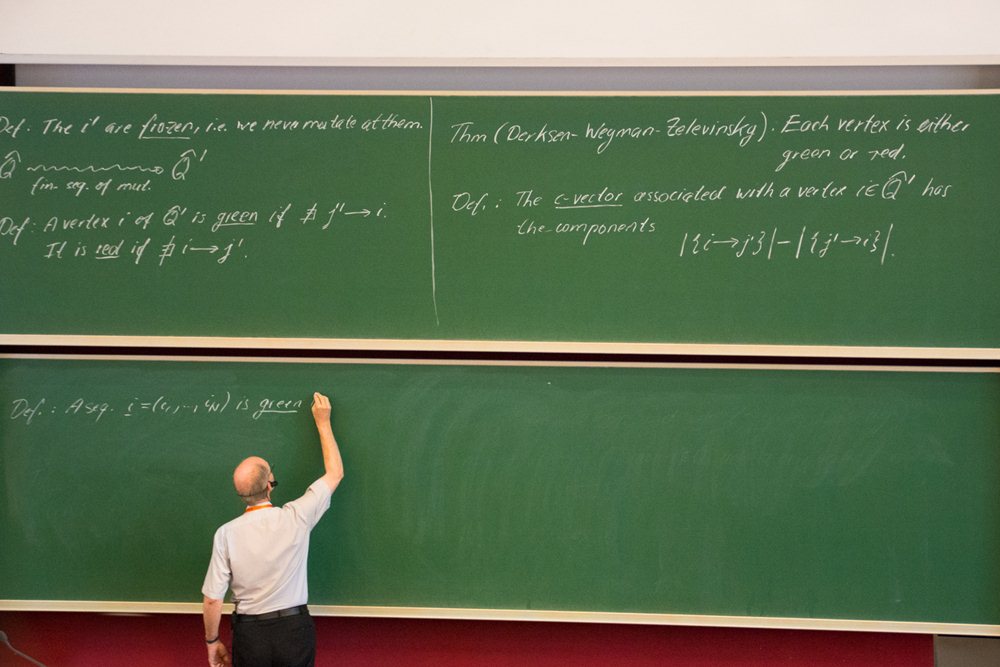 Def. The i' are frozen, i.e. we never mutate at them.
Q̂ ⇝ Q̂'
fin. seq. of mut.
Def: A vertex i of Q̂' is green if ∄ j' → i.
It is red if ∄ i → j'.
Thm (Derksen-Weyman-Zelevinsky). Each vertex is either
green or red.
Def.: The c-vector associated with a vertex i ∈ Q̂' has
the components
|{i → j'}| - |{j' → i}|.
Def.: A seq. i = (i₁, ..., i_N) is green